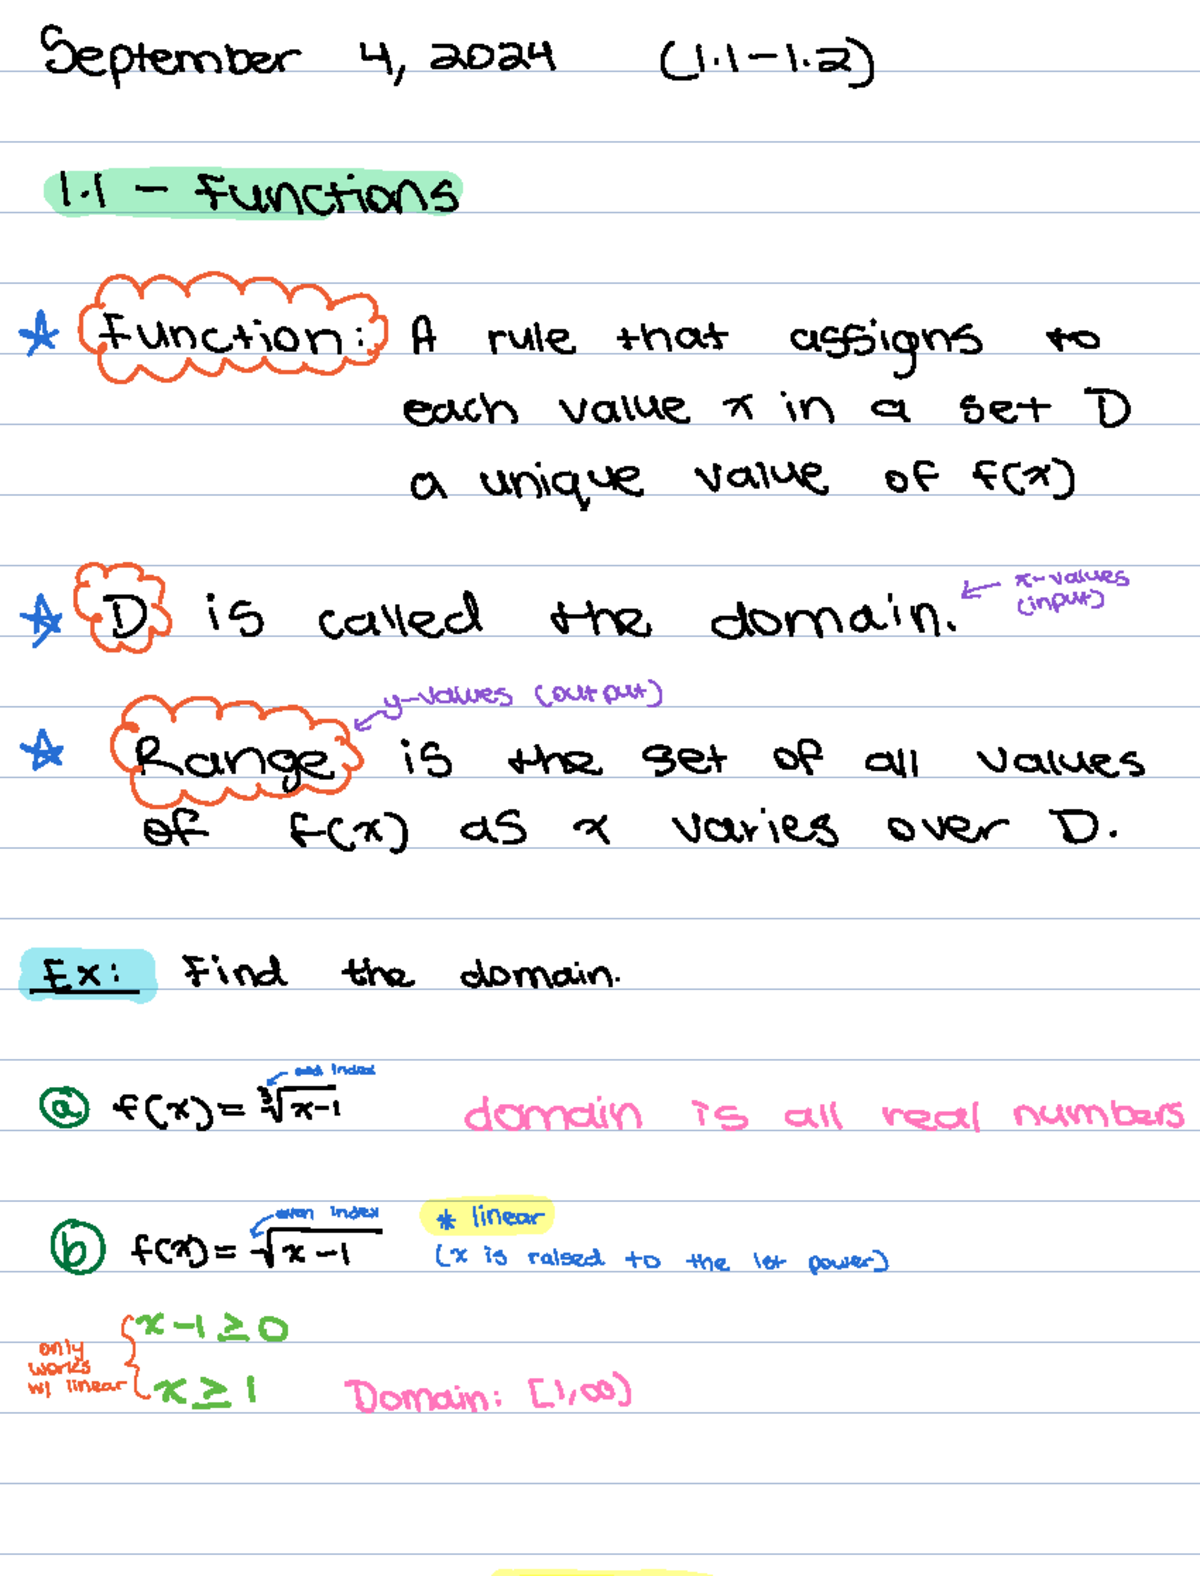 September 4, 2024 (1.1-1.2)
1.1 - Functions
Function: A rule that assigns to
each value x in a set D
a unique value of f(x)
D is called the domain. ← x-values
(input)
y-values (output)
Range is the set of all values
of f(x) as x varies over D.
Ex: Find the domain.
odd index
ⓐ f(x) = ∛(x-1) domain is all real numbers
even index * linear
ⓑ f(x) = √(x-1) (x is raised to the 1st power)
x-1 ≥ 0
only
works
w/ linear
x ≥ 1 Domain: [1,∞)